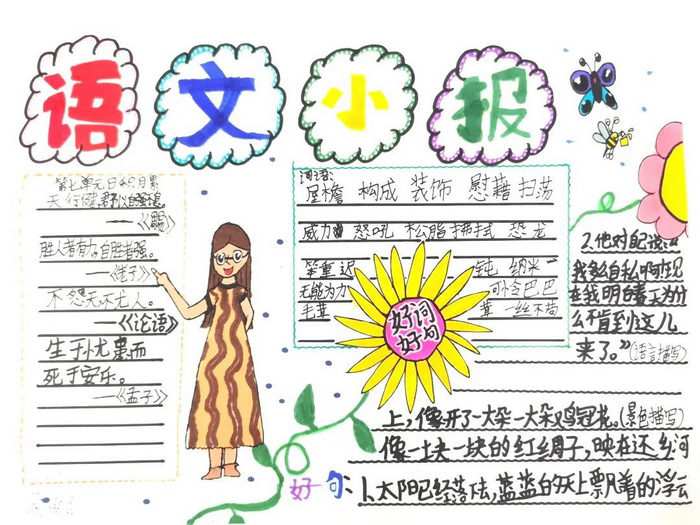 语文小报
第七单元日积月累
天行健,君子以自强不息
——《易》
胜人者有力,自胜者强。
——《老子》
不怨天,不尤人。
——《论语》
生于忧患而
死于安乐。
——《孟子》
词语:
屋檐 构成 装饰 慰藉 扫荡
威力 怒吼 松脂 拂拭 恐龙
笨重 迟钝 纳米
无能为力 可怜巴巴
毛茸茸 一丝不苟
好词
好句
2.他对自己说:“
我多么自私啊!现
在我明白春天为什
么不肯到这儿
来了。”(语言描写)
上,像开了一大朵一大朵鸡冠花。(景色描写)
像一块一块的红绸子,映在还乡河
好句:1、太阳已经落下去,蓝蓝的天上飘着的浮云